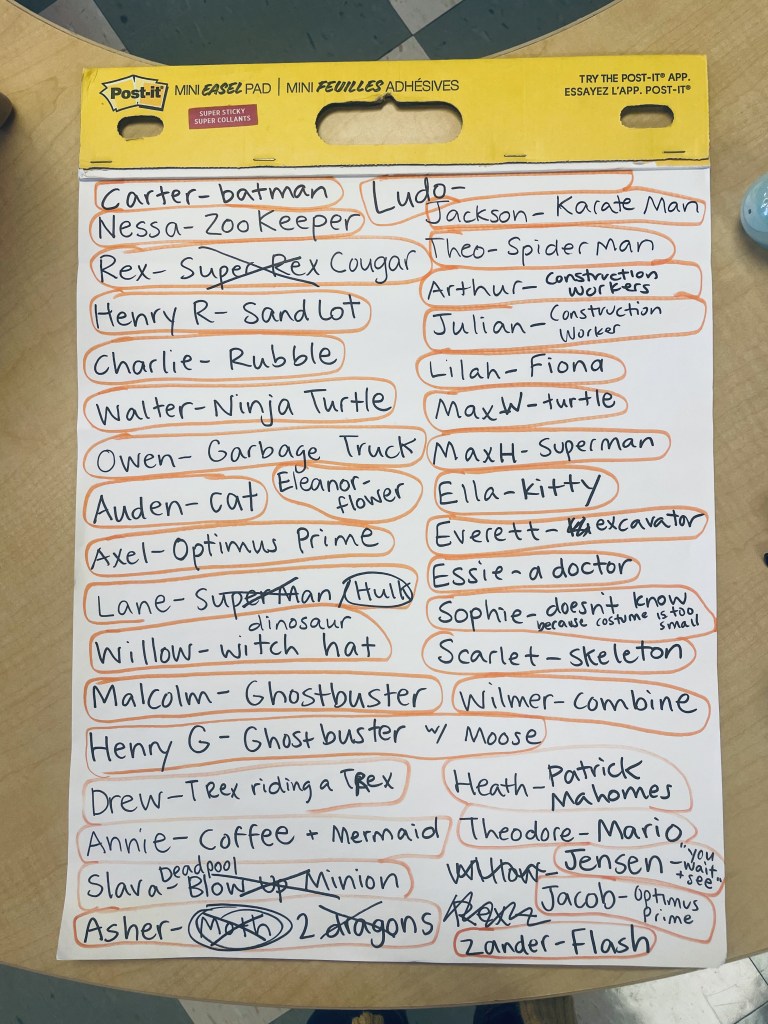 Post-it® MINI EASEL PAD | MINI FEUILLES ADHÉSIVES
SUPER STICKY
SUPER COLLANTS
TRY THE POST-IT® APP.
ESSAYEZ L'APP. POST-IT®
Carter- batman
Nessa- Zoo Keeper
Rex- Super Rex Cougar
Henry R- Sand Lot
Charlie- Rubble
Walter- Ninja Turtle
Owen- Garbage Truck
Auden- cat
Eleanor-
flower
Axel- Optimus Prime
Lane- SuperMan / Hulk
dinosaur
Willow- witch hat
Malcolm- Ghostbuster
Henry G- Ghostbuster w/ Moose
Drew- T Rex riding a TRex
Annie- Coffee + Mermaid
Deadpool
Slava- Blow Up Minion
Asher- Moth 2 dragons
Ludo-
Jackson- Karate Man
Theo- Spider Man
Arthur- Construction
workers
Julian- Construction
Worker
Lilah- Fiona
Max W- turtle
Max H- Superman
Ella- Kitty
Everett- excavator
Essie- a doctor
Sophie- doesn't know
because costume is too
small
Scarlet- skeleton
Wilmer- combine
Heath- Patrick
Mahomes
Theodore- Mario
Jensen - "you
wait
+ see"
Jacob- Optimus
Prime
Zander- Flash